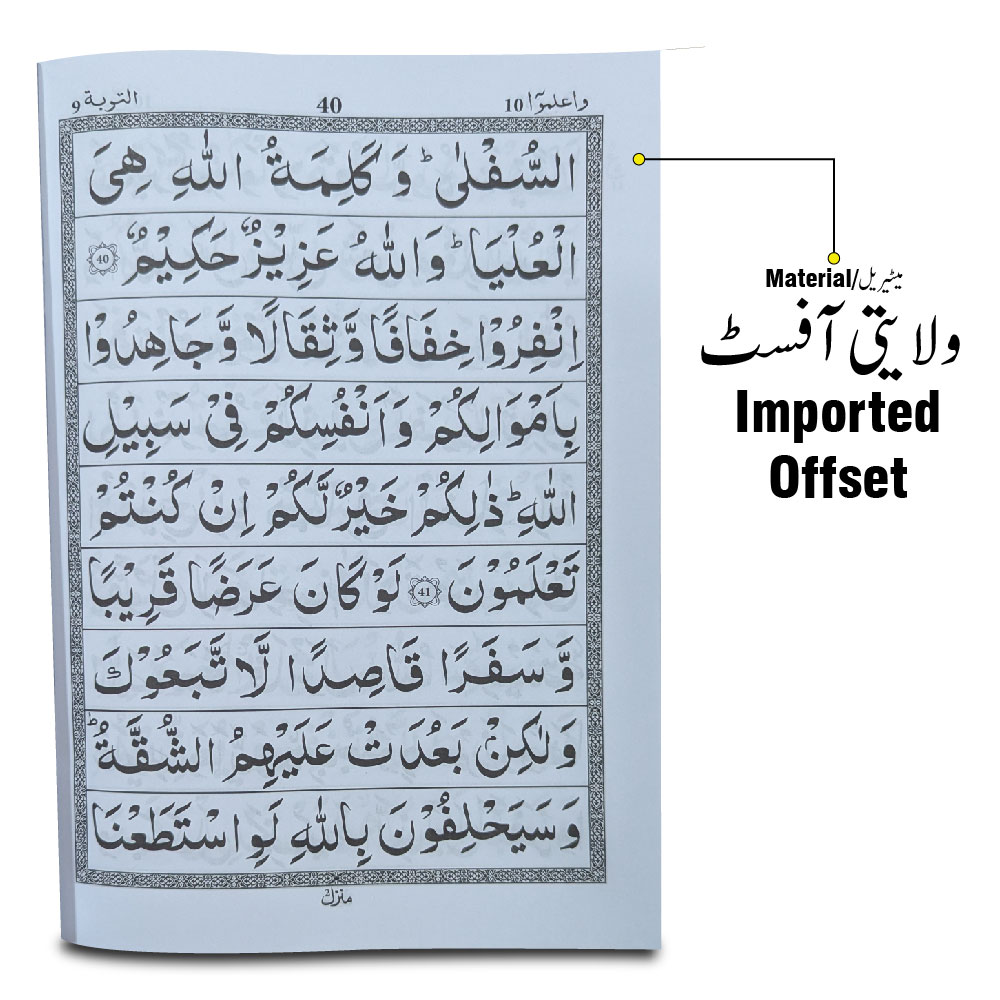 واعلموٓا 10
40
التوبة 9
السُّفْلٰى ؕ وَ كَلِمَةُ اللّٰهِ هِیَ
الْعُلْیَا ؕ وَاللّٰهُ عَزِیْزٌ حَكِیْمٌ 40
اِنْفِرُوْا خِفَافًا وَّ ثِقَالًا وَّ جَاهِدُوْا
بِاَمْوَالِكُمْ وَ اَنْفُسِكُمْ فِیْ سَبِیْلِ
اللّٰهِ ؕ ذٰلِكُمْ خَیْرٌ لَّكُمْ اِنْ كُنْتُمْ
تَعْلَمُوْنَ 41 لَوْ كَانَ عَرَضًا قَرِیْبًا
وَّ سَفَرًا قَاصِدًا لَّا تَّبَعُوْكَ
وَ لٰكِنْۢ بَعُدَتْ عَلَیْهِمُ الشُّقَّةُ ؕ
وَ سَیَحْلِفُوْنَ بِاللّٰهِ لَوِ اسْتَطَعْنَا
منزل 2
Material/میٹیریل
ولایتی آفسٹ
Imported
Offset